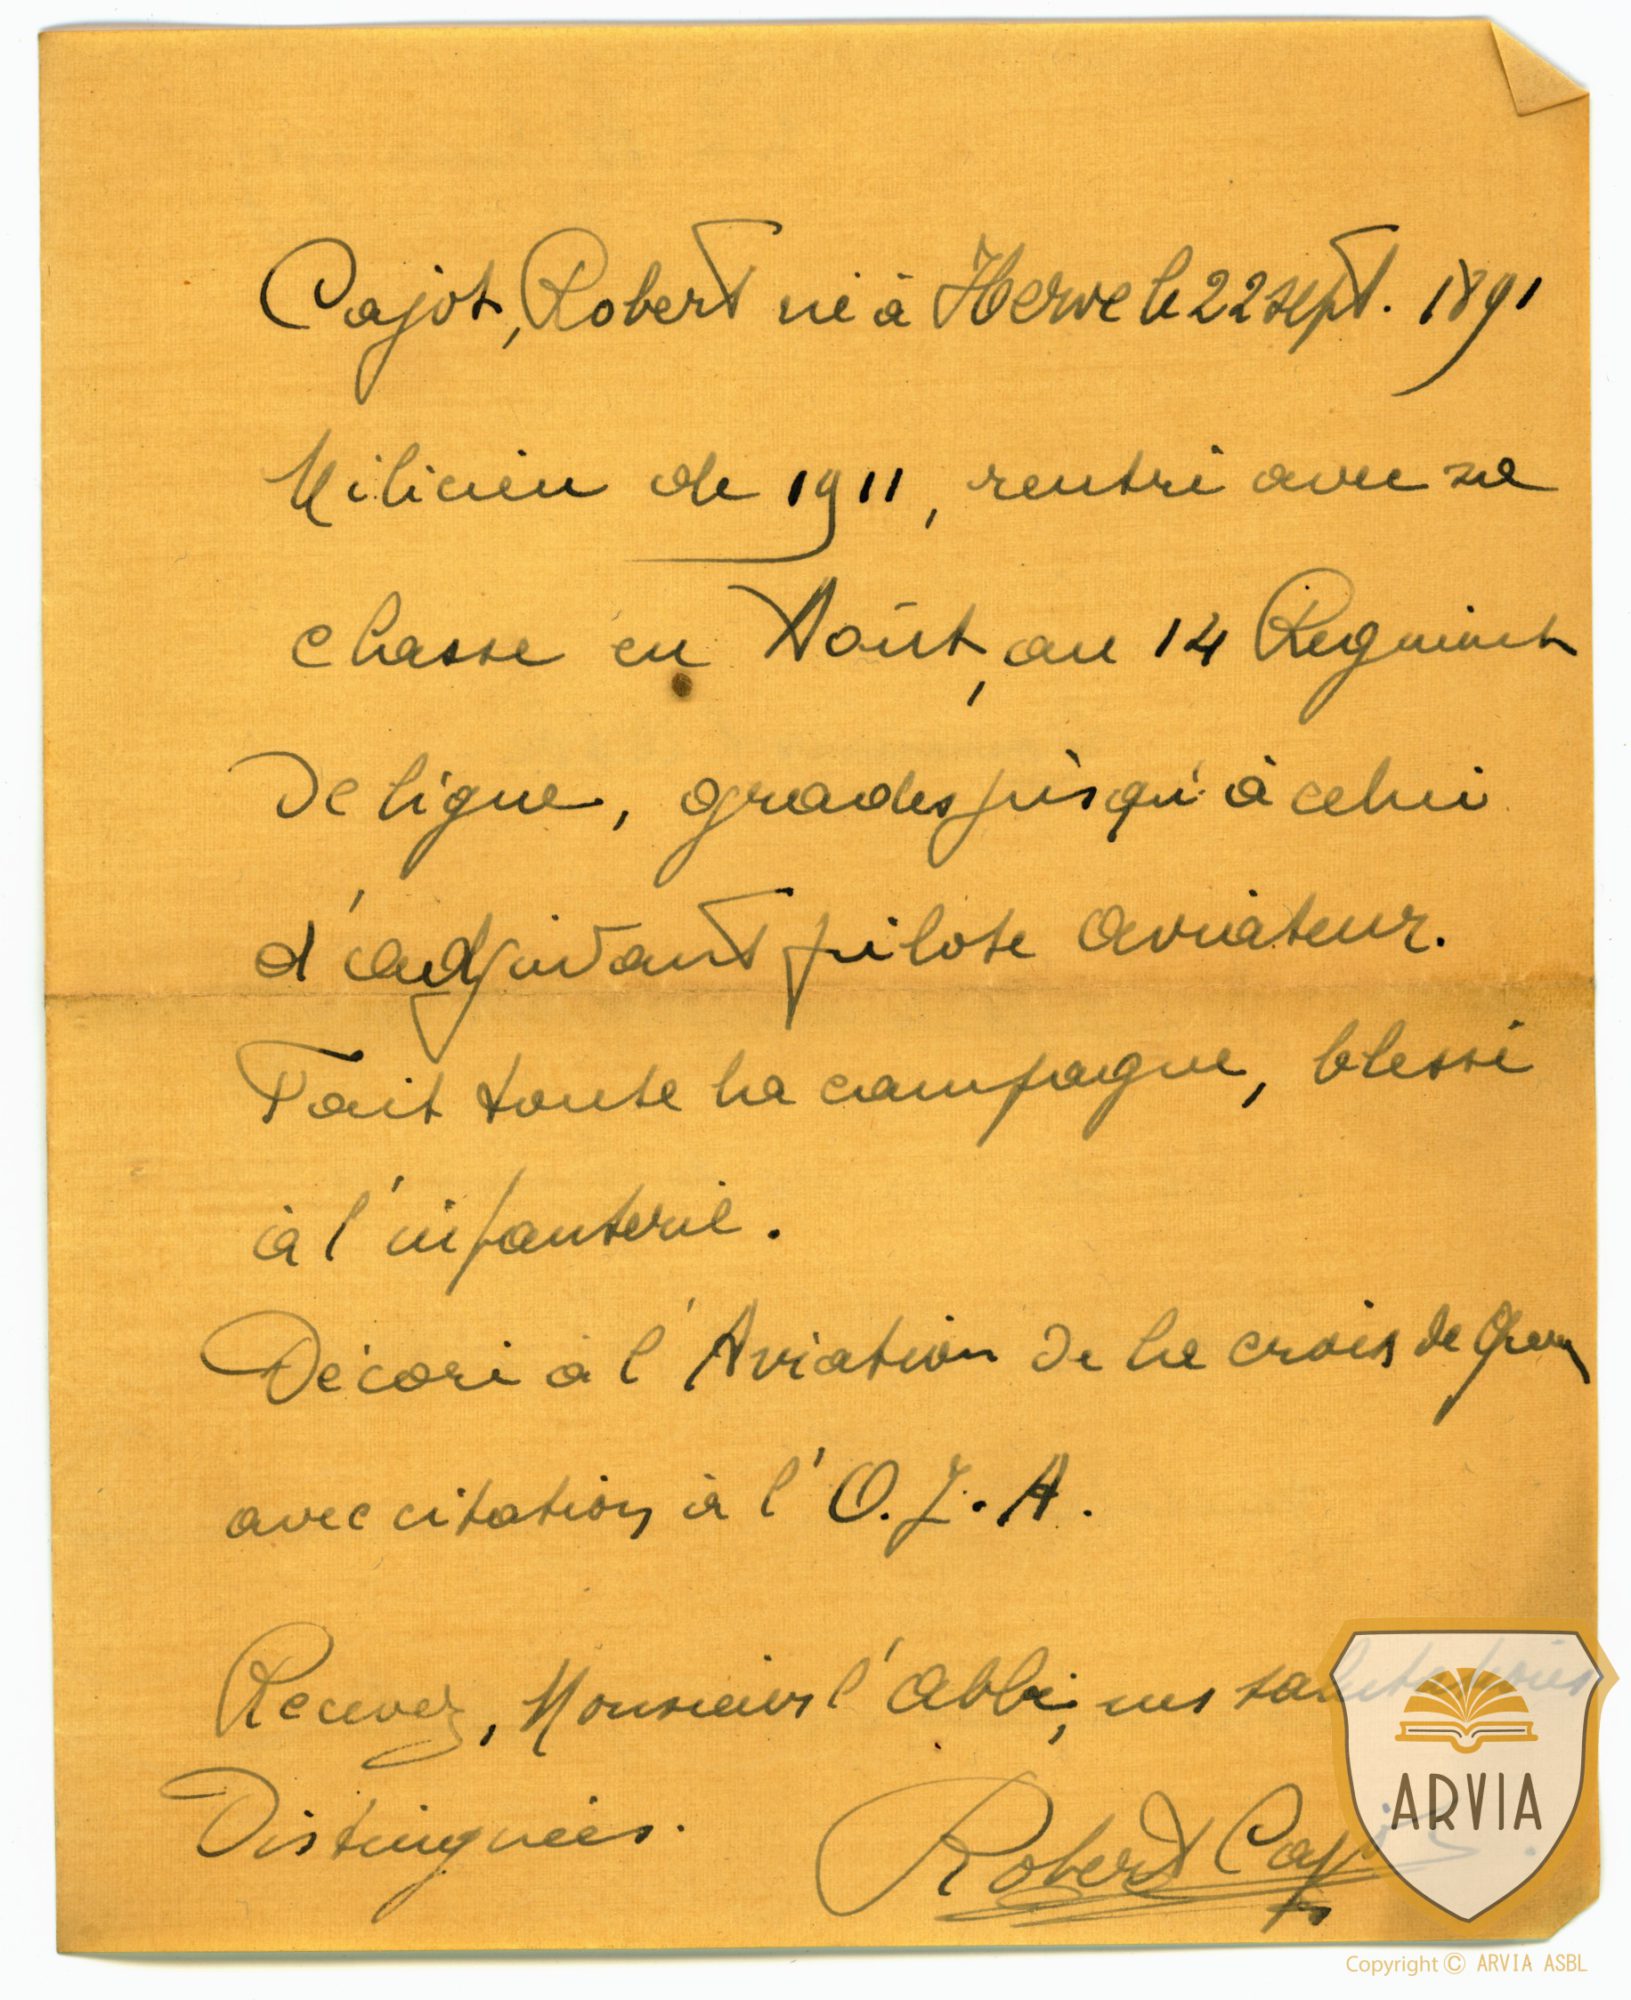 Cajot, Robert né à Herve le 22 sept. 1891
Milicien de 1911, rentré avec sa
classe en Août, au 14 Regiment
De ligne, grades jusqu'à celui
d'adjudant pilote aviateur.
Fait toute la campagne, blessé
à l'infanterie.
Décoré à l'Aviation De la crois de Guerre
avec citation à l'O.J.A.
Recevez, Monsieur l'abbé, mes salutations
Distinguées.
Robert Cajot
ARVIA
Copyright © ARVIA ASBL